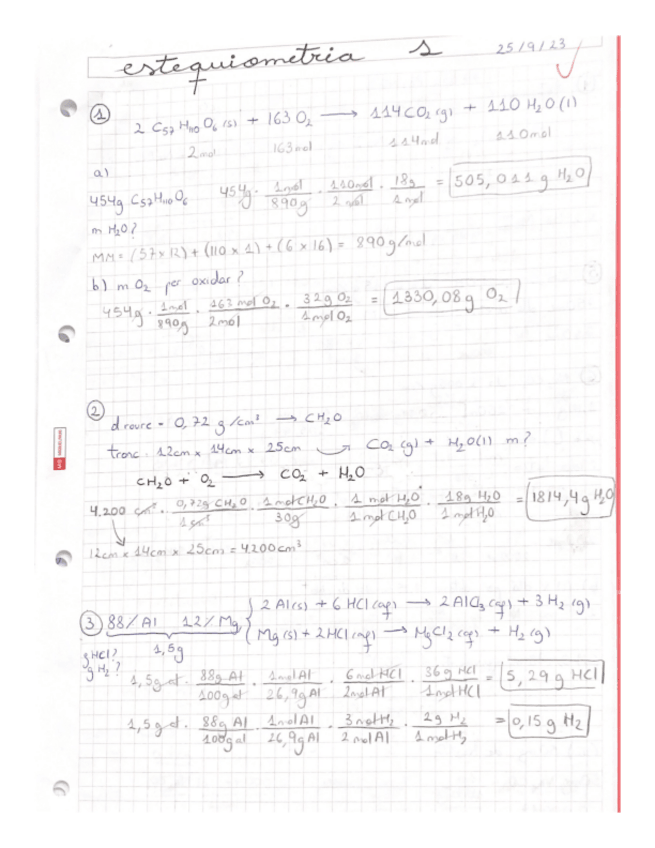 estequiometria 1
25/9/23
1
2 C57 H110 O6 (s) + 163 O2 → 114 CO2 (g) + 110 H2O (l)
2mol 163mol 114mol 110mol
a)
454g C57H110O6 454g · 1mol/890g · 110mol/2mol · 18g/1mol = 505,011 g H2O
m H2O?
MM = (57 x 12) + (110 x 1) + (6 x 16) = 890 g/mol
b) m O2 per oxidar?
454g · 1mol/890g · 163 mol O2/2mol · 32g O2/1mol O2 = 1330,08g O2
2
d roure = 0,72 g/cm³ → CH2O
tronc: 12cm x 14cm x 25cm → CO2 (g) + H2O(l) m?
CH2O + O2 → CO2 + H2O
4.200 cm³ · 0,72g CH2O/1cm³ · 1 mol CH2O/30g · 1 mol H2O/1 mol CH2O · 18g H2O/1 mol H2O = 1814,4g H2O
12cm x 14cm x 25cm = 4200cm³
3 88% Al 12% Mg { 2 Al(s) + 6 HCl (aq) → 2 AlCl3 (aq) + 3 H2 (g)
Mg(s) + 2HCl (aq) → MgCl2 (aq) + H2 (g)
1,5g
g HCl?
g H2?
1,5g al · 88g Al/100g al · 1mol Al/26,9g Al · 6mol HCl/2mol Al · 36g HCl/1mol HCl = 5,29 g HCl
1,5g al · 88g Al/100g al · 1mol Al/26,9g Al · 3 mol H2/2 mol Al · 2g H2/1 mol H2 = 0,15 g H2